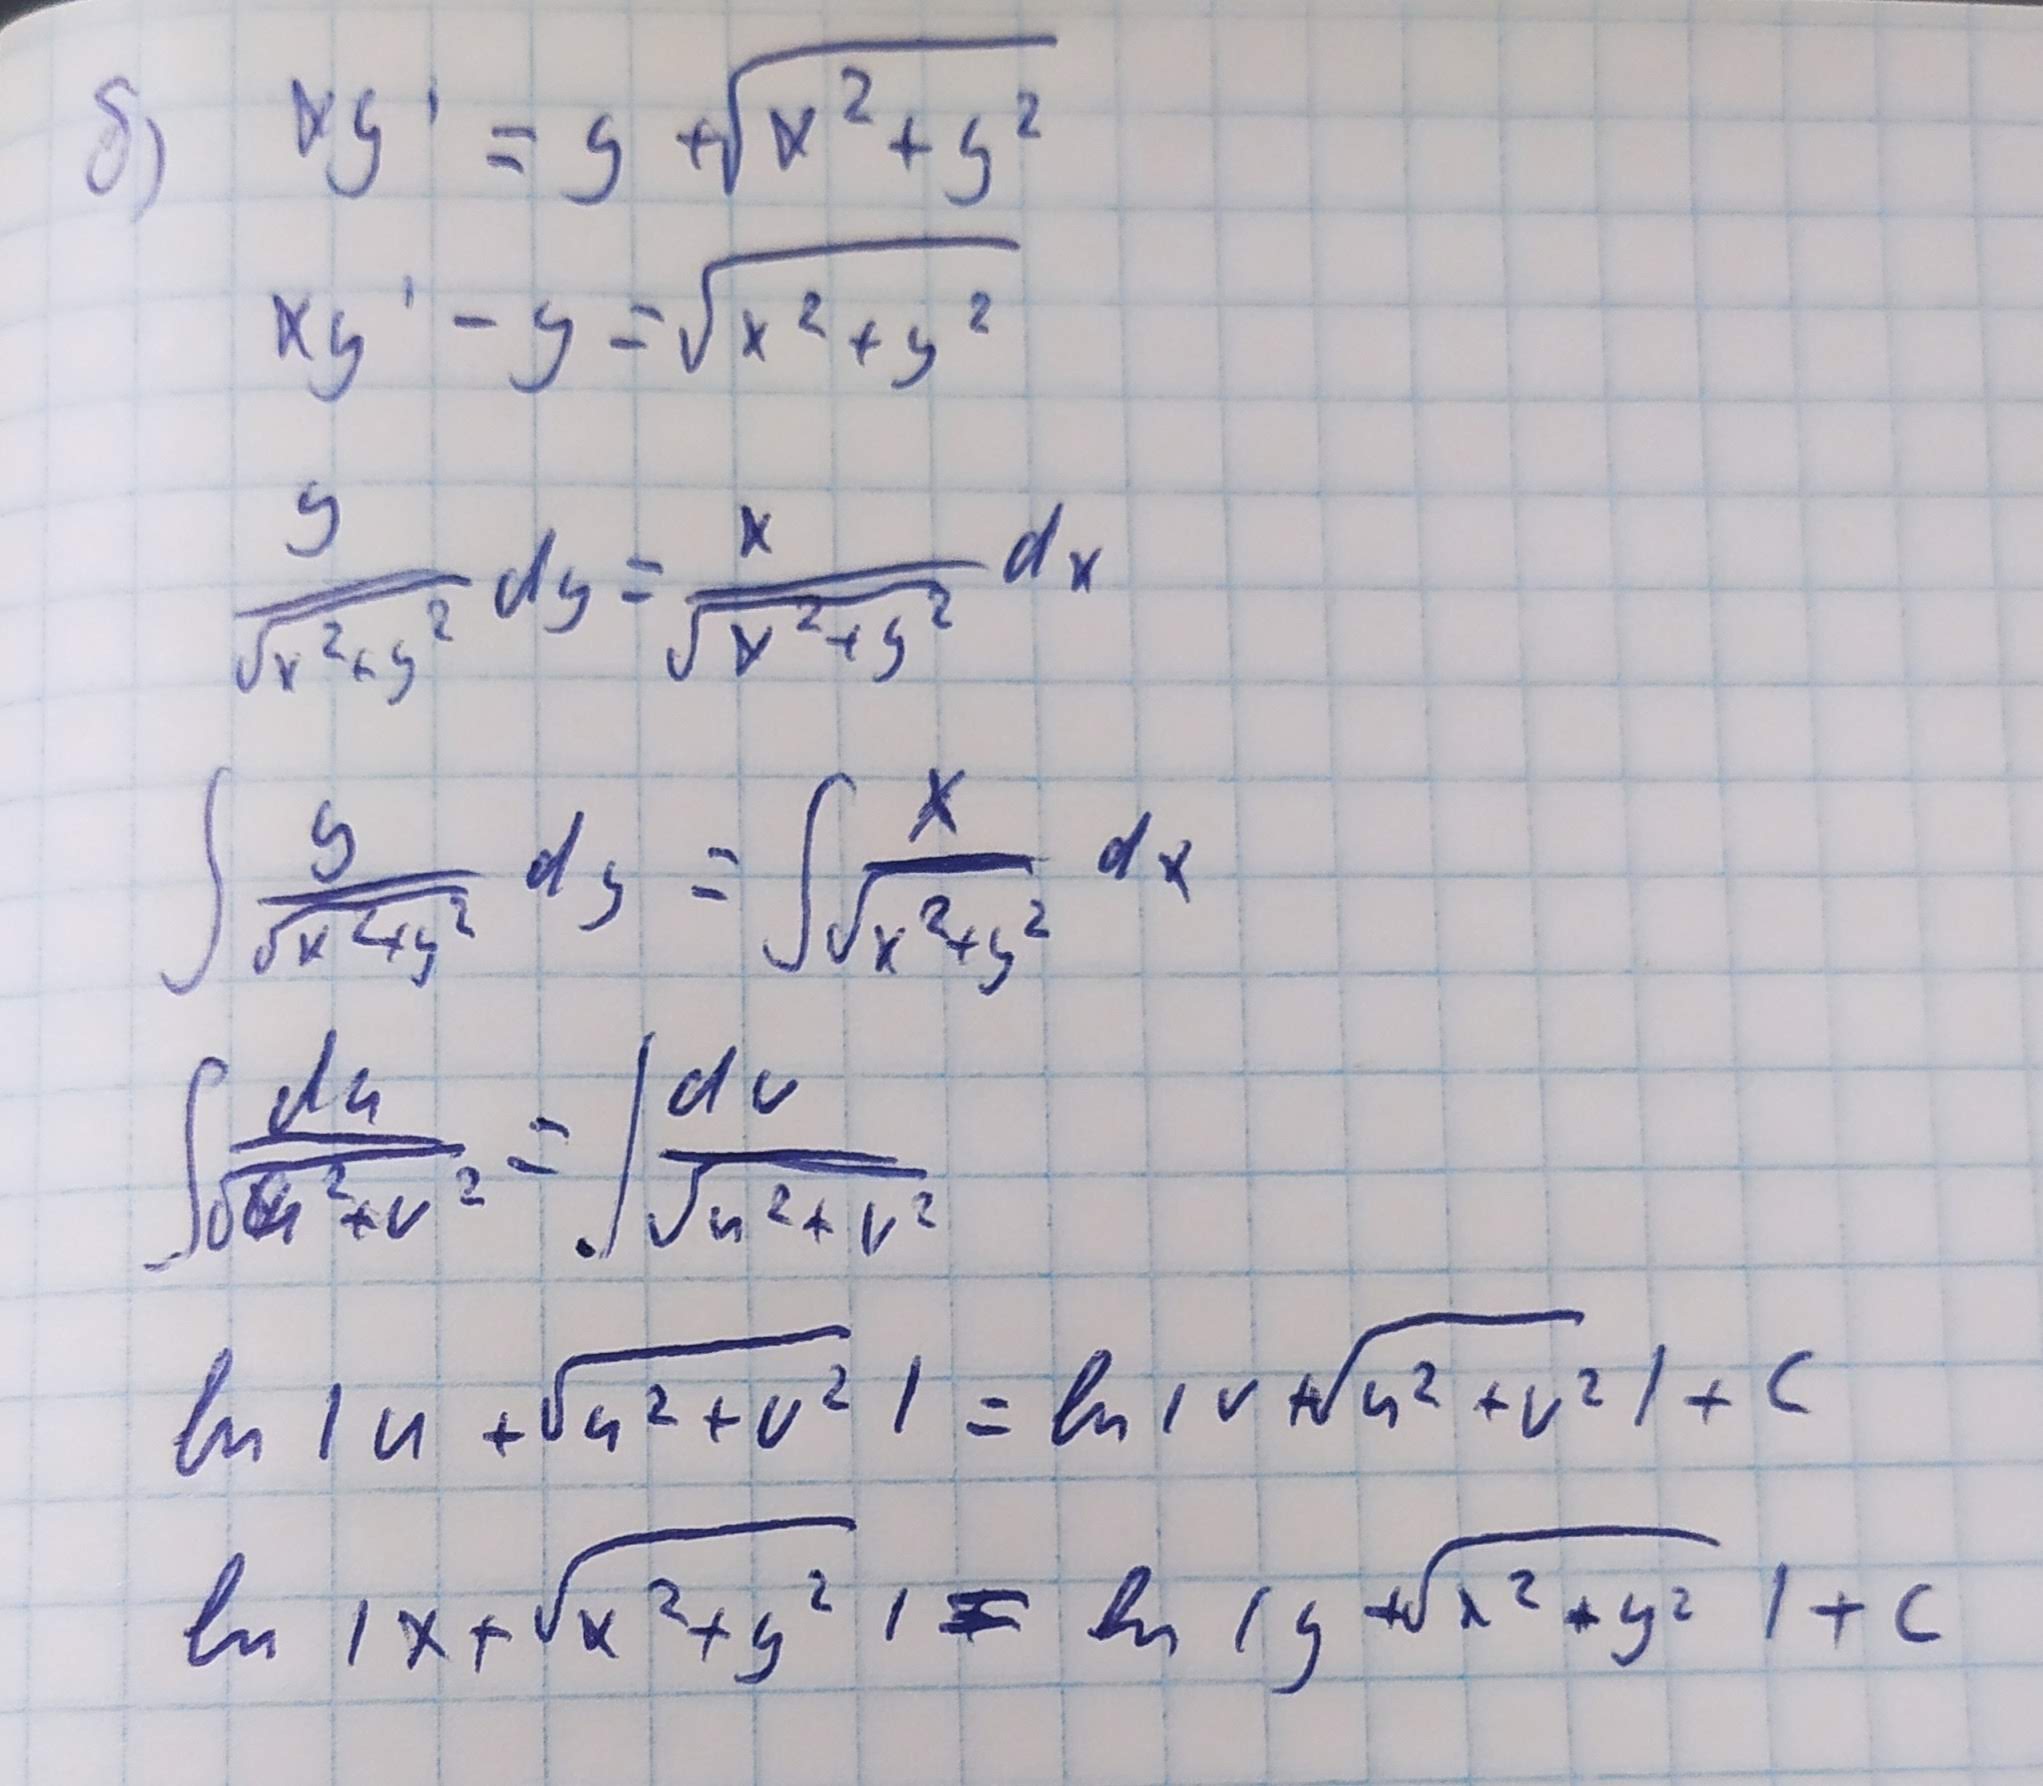 б) xy' = y + √(x² + y²)
xy' - y = √(x² + y²)
y/√(x² + y²) dy = x/√(x² + y²) dx
∫ y/√(x² + y²) dy = ∫ x/√(x² + y²) dx
∫ du/√(u² + v²) = ∫ dv/√(u² + v²)
ln |u + √(u² + v²)| = ln |v + √(u² + v²)| + C
ln |x + √(x² + y²)| = ln |y + √(x² + y²)| + C